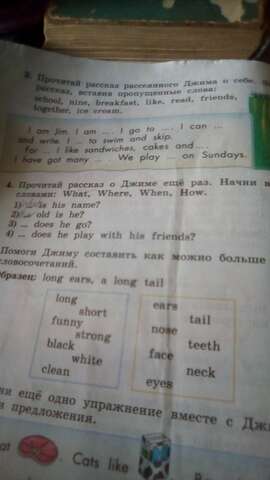 3. Прочитай рассказ рассеянного Джима о себе.
рассказ, вставив пропущенные слова:
school, nine, breakfast, like, read, friends,
together, ice cream.
I am Jim. I am ... . I go to ... . I can ...
and write. I ... to swim and skip.
for ... I like sandwiches, cakes and ... .
I have got many ... . We play ... on Sundays.
4. Прочитай рассказ о Джиме ещё раз. Начни
словами: What, Where, When, How.
1) is his name?
2) old is he?
3) ... does he go?
4) ... does he play with his friends?
Помоги Джиму составить как можно больше
словосочетаний.
Образец: long ears, a long tail
long
short
funny
strong
black
white
clean
ears
tail
nose
teeth
face
neck
eyes
ещё одно упражнение вместе с
предложения.
Cats like